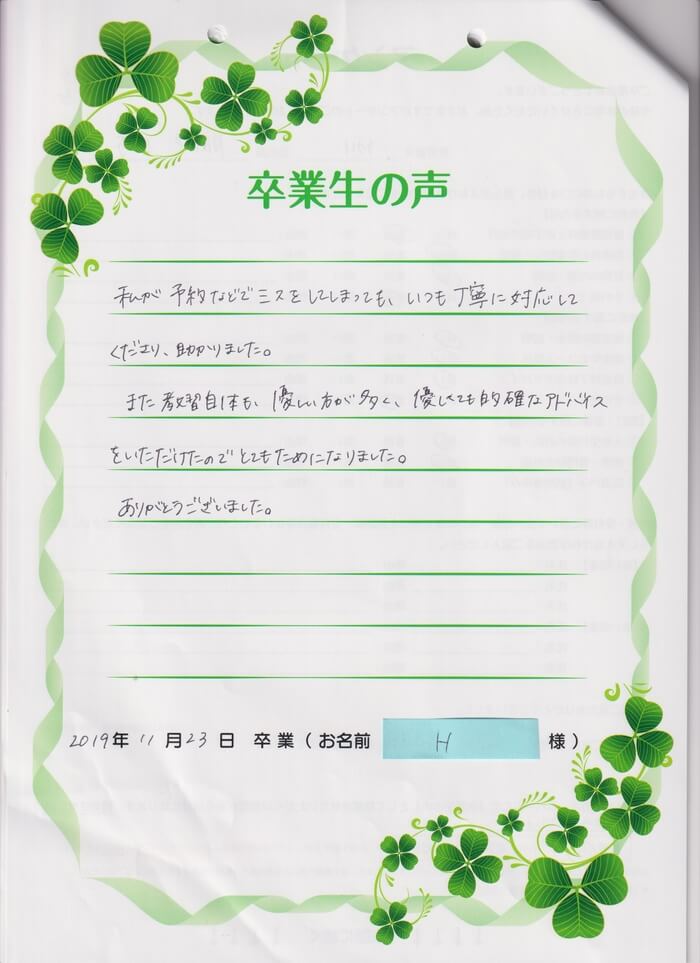 卒業生の声
私が予約などでミスをしてしまっても、いつも丁寧に対応して
くださり、助かりました。
また教習自体も、優しい方が多く、優しくても的確なアドバイス
をいただけたのでとてもためになりました。
ありがとうございました。
2019年11月23日 卒業(お名前 H 様)